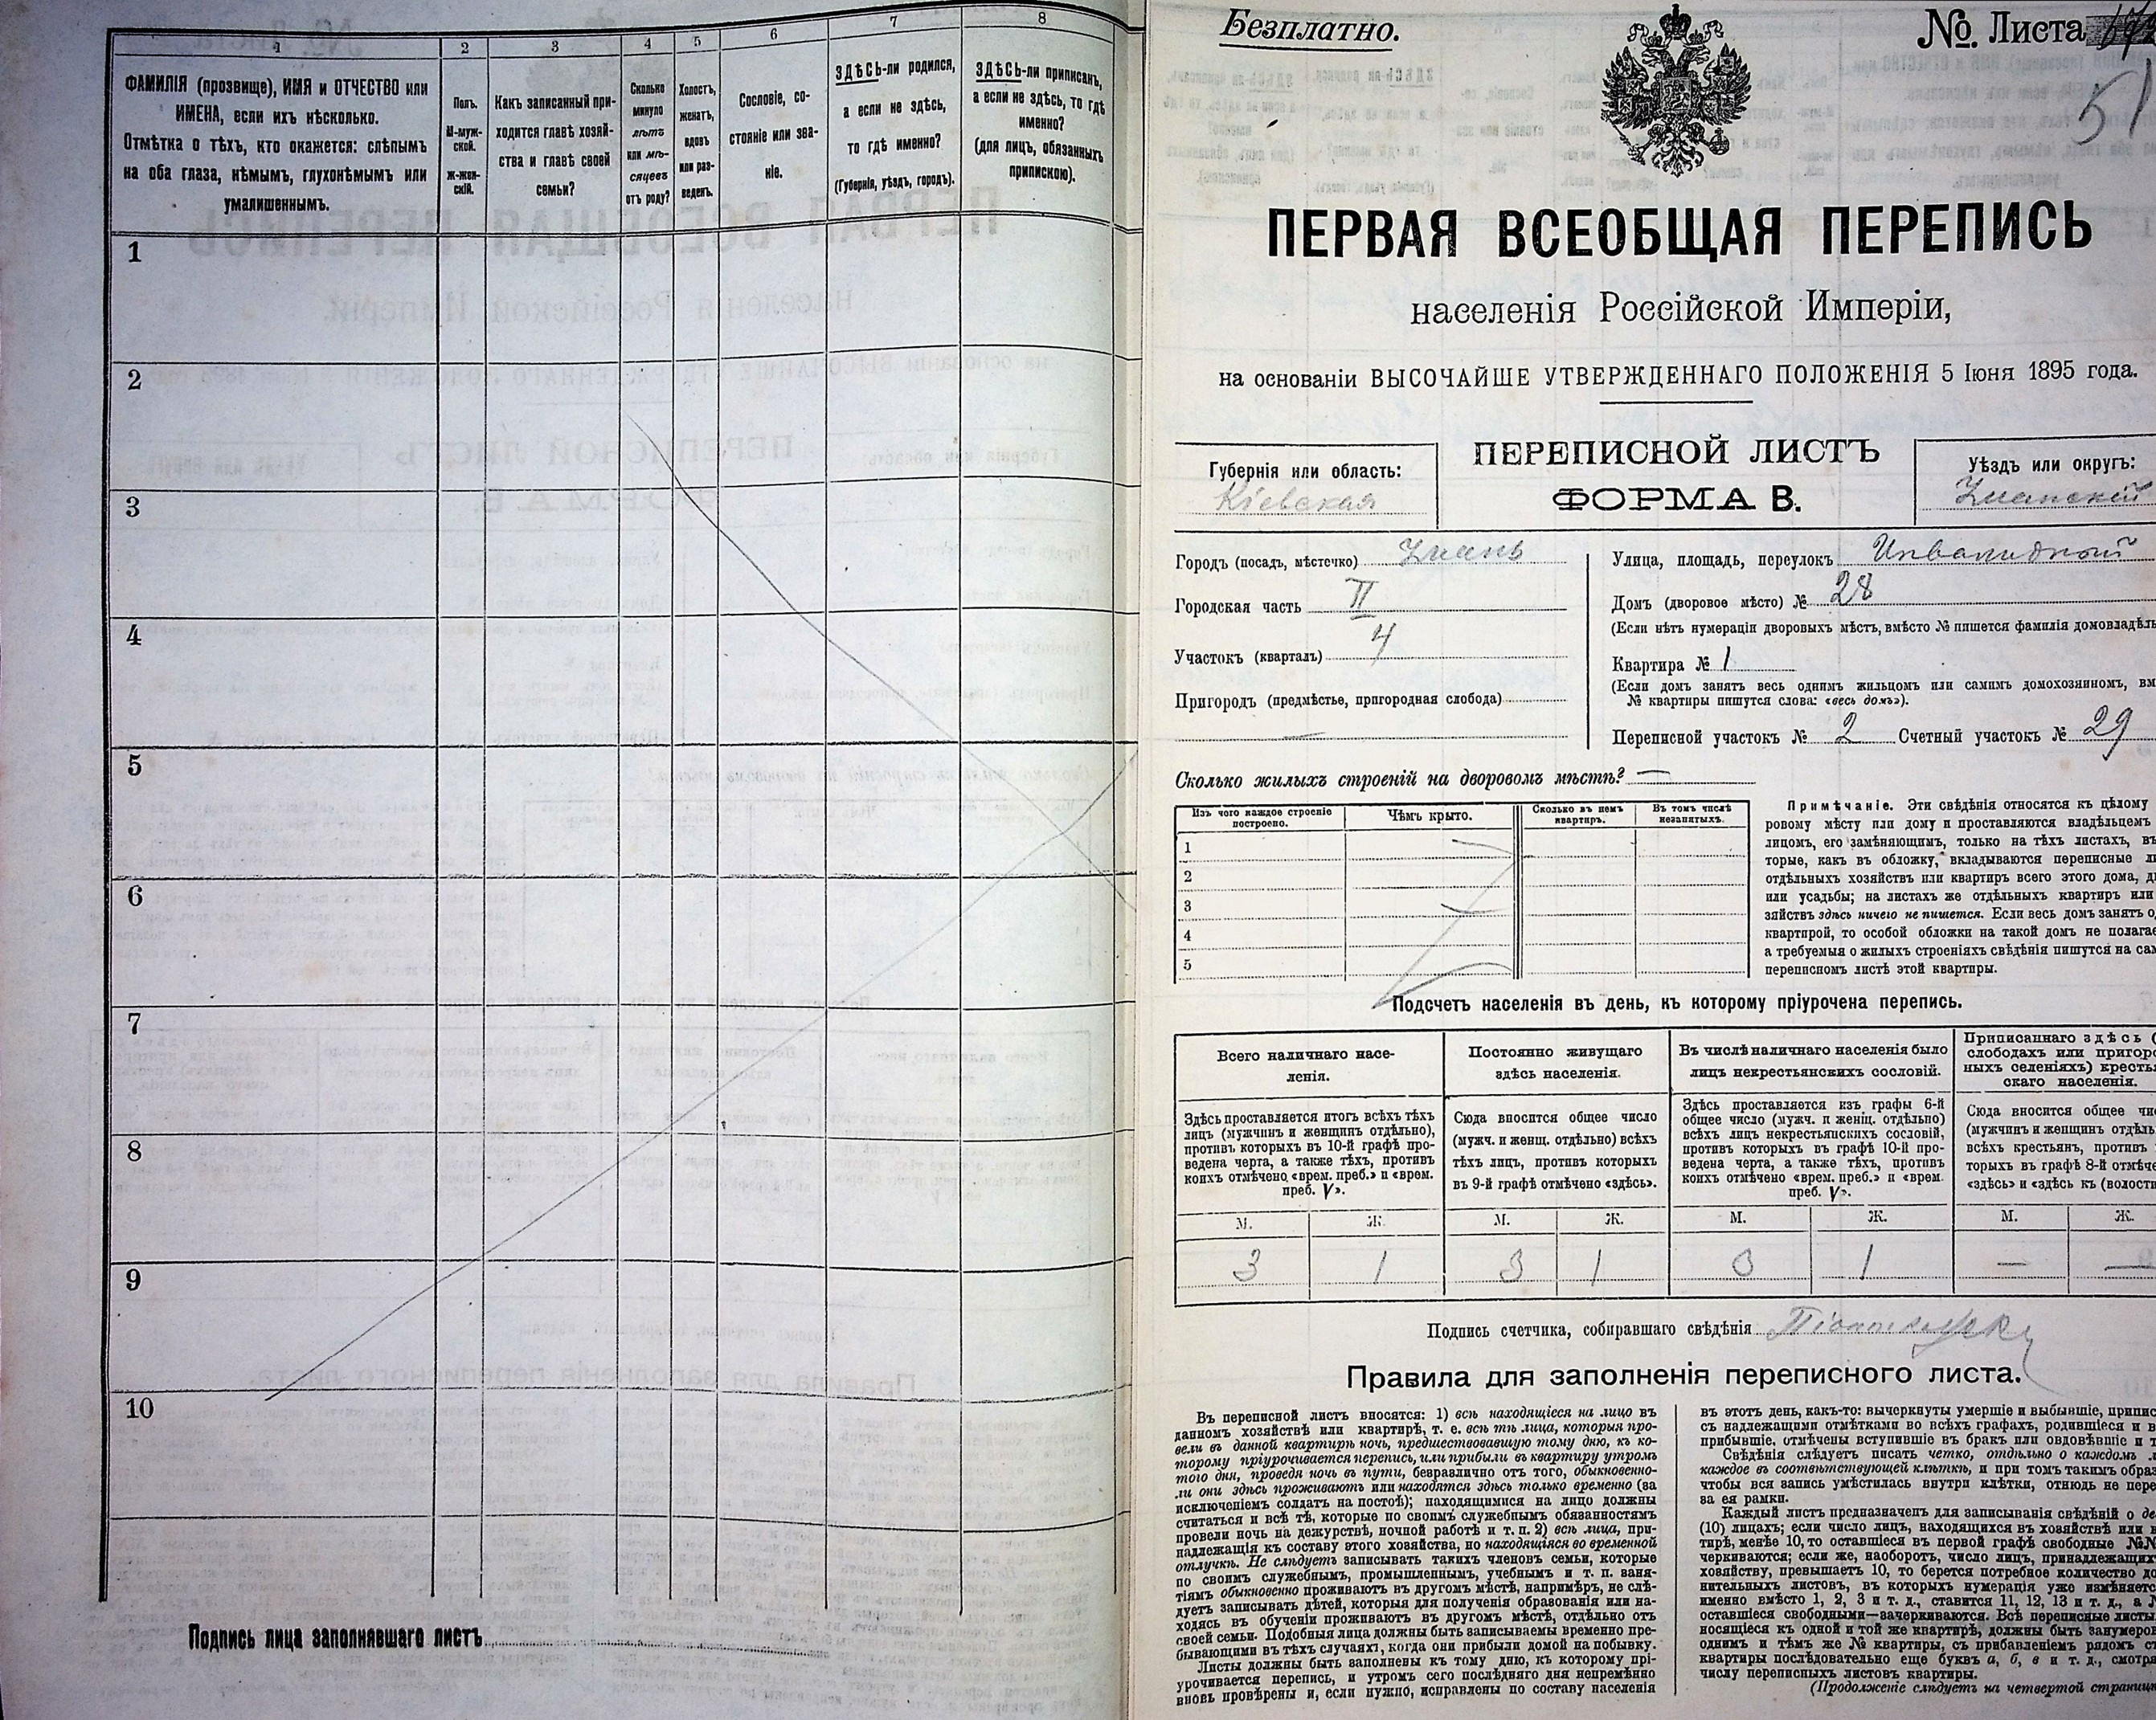 1
2
3
4
5
6
7
8
ФАМИЛІЯ (прозвище), ИМЯ и ОТЧЕСТВО или
ИМЕНА, если ихъ нѣсколько.
Отмѣтка о тѣхъ, кто окажется: слѣпымъ
на оба глаза, нѣмымъ, глухонѣмымъ или
умалишеннымъ.
Полъ.
М-муж-
ской.
ж-жен-
скій.
Какъ записанный при-
ходится главѣ хозяй-
ства и главѣ своей
семьи?
Сколько
минуло
лѣтъ
или мѣ-
сяцевъ
отъ роду?
Холостъ,
женатъ,
вдовъ
или раз-
веденъ.
Сословіе, со-
стояніе или зва-
ніе.
ЗДѢСЬ-ли родился,
а если не здѣсь,
то гдѣ именно?
(Губернія, уѣздъ, городъ).
ЗДѢСЬ-ли приписанъ,
а если не здѣсь, то гдѣ
именно?
(для лицъ, обязанныхъ
припискою).
1
2
3
4
5
6
7
8
9
10
Подпись лица заполнявшаго листъ
Безплатно.
№ Листа
51
ПЕРВАЯ ВСЕОБЩАЯ ПЕРЕПИСЬ
населенія Россійской Имперіи,
на основаніи ВЫСОЧАЙШЕ УТВЕРЖДЕННАГО ПОЛОЖЕНІЯ 5 Іюня 1895 года.
Губернія или область:
Кіевская
ПЕРЕПИСНОЙ ЛИСТЪ
ФОРМА В.
Уѣздъ или округъ:
Уманскій
Городъ (посадъ, мѣстечко) Умань
Городская часть II
Участокъ (кварталъ) 4
Пригородъ (предмѣстье, пригородная слобода)
Улица, площадь, переулокъ Инвалидный
Домъ (дворовое мѣсто) № 28
(Если нѣтъ нумераціи дворовыхъ мѣстъ, вмѣсто № пишется фамилія домовладѣль
Квартира № 1
(Если домъ занятъ весь однимъ жильцомъ или самимъ домохозяиномъ, вм
№ квартиры пишутся слова: «весь домъ»).
Переписной участокъ № 2 Счетный участокъ № 29
Сколько жилыхъ строеній на дворовомъ мѣстѣ? —
Изъ чего каждое строеніе
построено.
Чѣмъ крыто.
Сколько въ немъ
квартиръ.
Въ томъ числѣ
незанятыхъ.
1
2
3
4
5
Примѣчаніе. Эти свѣдѣнія относятся къ цѣлому
ровому мѣсту или дому и проставляются владѣльцемъ
лицомъ, его замѣняющимъ, только на тѣхъ листахъ, въ
торые, какъ въ обложку, вкладываются переписные ли
отдѣльныхъ хозяйствъ или квартиръ всего этого дома, д
или усадьбы; на листахъ же отдѣльныхъ квартиръ или
зяйствъ здѣсь ничего не пишется. Если весь домъ занятъ о
квартирой, то особой обложки на такой домъ не полагае
а требуемыя о жилыхъ строеніяхъ свѣдѣнія пишутся на са
переписномъ листѣ этой квартиры.
Подсчетъ населенія въ день, къ которому пріурочена перепись.
Всего наличнаго насе-
ленія.
Здѣсь проставляется итогъ всѣхъ тѣхъ
лицъ (мужчинъ и женщинъ отдѣльно),
противъ которыхъ въ 10-й графѣ про-
ведена черта, а также тѣхъ, противъ
коихъ отмѣчено «врем. преб.» и «врем.
преб. V».
Постоянно живущаго
здѣсь населенія.
Сюда вносится общее число
(мужч. и женщ. отдѣльно) всѣхъ
тѣхъ лицъ, противъ которыхъ
въ 9-й графѣ отмѣчено «здѣсь».
Въ числѣ наличнаго населенія было
лицъ некрестьянскихъ сословій.
Здѣсь проставляется изъ графы 6-й
общее число (мужч. и женщ. отдѣльно)
всѣхъ лицъ некрестьянскихъ сословій,
противъ которыхъ въ графѣ 10-й про-
ведена черта, а также тѣхъ, противъ
коихъ отмѣчено «врем. преб.» и «врем.
преб. V».
Приписаннаго здѣсь (
слободахъ или пригоро
ныхъ селеніяхъ) кресть
скаго населенія.
Сюда вносится общее чис
(мужчинъ и женщинъ отдѣль
всѣхъ крестьян, противъ
торыхъ въ графѣ 8-й отмѣче
«здѣсь» и «здѣсь къ (волости
М. Ж. М. Ж. М. Ж. М. Ж.
3 1 3 1 3 1 — —
Подпись счетчика, собиравшаго свѣдѣнія
Правила для заполненія переписного листа.
Въ переписной листъ вносятся: 1) всѣ находящіеся на лицо въ
данномъ хозяйствѣ или квартирѣ, т. е. всѣ тѣ лица, которыя про-
вели въ данной квартирѣ ночь, предшествовавшую тому дню, къ ко-
торому пріурочивается перепись, или прибыли въ квартиру утромъ
того дня, проведя ночь въ пути, безразлично отъ того, обыкновенно-
ли они здѣсь проживаютъ или находятся здѣсь только временно (за
исключеніемъ солдатъ на постоѣ); находящимися на лицо должны
считаться и всѣ тѣ, которые по своимъ служебнымъ обязанностямъ
провели ночь на дежурствѣ, ночной работѣ и т. п. 2) всѣ лица, при-
надлежащія къ составу этого хозяйства, но находящіяся во временной
отлучкѣ. Не слѣдуетъ записывать такихъ членовъ семьи, которые
по своимъ служебнымъ, промышленнымъ, учебнымъ и т. п. заня-
тіямъ обыкновенно проживаютъ въ другомъ мѣстѣ, напримѣръ, не слѣ-
дуетъ записывать дѣтей, которыя для полученія образованія или на-
ходясь въ обученіи проживаютъ въ другомъ мѣстѣ, отдѣльно отъ
своей семьи. Подобныя лица должны быть записываемы временно пре-
бывающими въ тѣхъ случаяхъ, когда они прибыли домой на побывку.
Листы должны быть заполнены къ тому дню, къ которому прі-
урочивается перепись, и утромъ сего послѣдняго дня непремѣнно
вновь провѣрены и, если нужно, исправлены по составу населенія
въ этотъ день, какъ-то: вычеркнуты умершіе и выбывшіе, припис
съ надлежащими отмѣтками во всѣхъ графахъ, родившіеся и в
прибывшіе, отмѣчены вступившіе въ бракъ или овдовѣвшіе и т
Свѣдѣнія слѣдуетъ писать четко, отдѣльно о каждомъ л
каждое въ соотвѣтствующей клѣткѣ, и при томъ такимъ образ
чтобы вся запись умѣстилась внутри клѣтки, отнюдь не пере
за ея рамки.
Каждый листъ предназначенъ для записыванія свѣдѣній о де
(10) лицахъ; если число лицъ, находящихся въ хозяйствѣ или к
тирѣ, менѣе 10, то оставшіеся въ первой графѣ свободные №№
черкиваются; если же, наоборотъ, число лицъ, принадлежащихъ
хозяйству, превышаетъ 10, то берется потребное количество до
нительныхъ листовъ, въ которыхъ нумерація уже измѣняетс
именно вмѣсто 1, 2, 3 и т. д., ставится 11, 12, 13 и т. д., а №
оставшіеся свободными—зачеркиваются. Всѣ переписные листы
носящіеся къ одной и той же квартирѣ, должны быть занумеров
однимъ и тѣмъ же № квартиры, съ прибавленіемъ рядомъ съ
квартиры послѣдовательно еще буквъ а, б, в и т. д., смотря
числу переписныхъ листовъ квартиры.
(Продолженіе слѣдуетъ на четвертой страниц